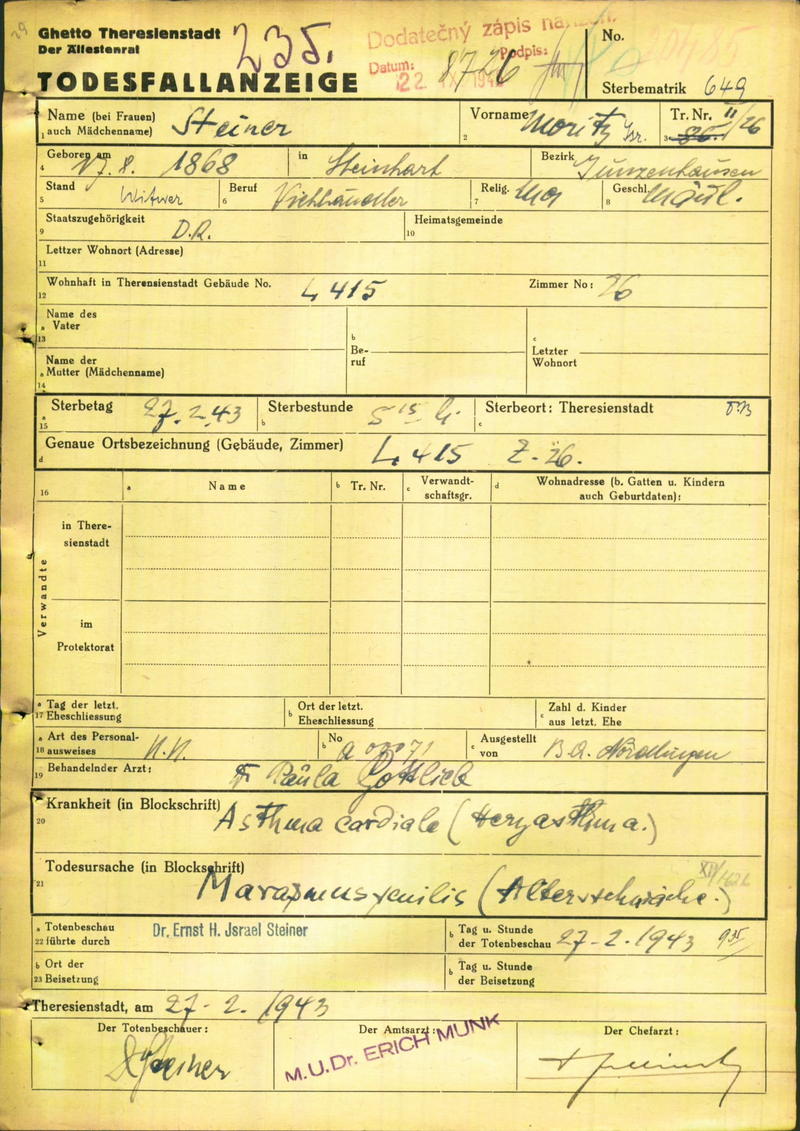 29
Ghetto Theresienstadt
Der Ällestenrat
TODESFALLANZEIGE
235.
Dodatečný zápis
Datum: 22
Podpis:
8726
No.
Sterbematrik 649
Name (bei Frauen)
1 auch Mädchenname) Steiner
Vorname
2 Moritz Isr.
Tr. Nr. II/26
3
4 Geboren am 17. 8. 1868 in Steinhart Bezirk Gunzenhausen
Stand
5 Witwer
Beruf
6 Viehhändler
Relig.
7 Mos
Geschl.
8 Männl.
Staatszugehörigkeit
9 D.R.
Heimatsgemeinde
10
Lettzer Wohnort (Adresse)
11
Wohnhaft in Therensienstadt Gebäude No. L 415 Zimmer No: 26
12
Name des
a Vater
13
Name der
a Mutter (Mädchenname)
14
b
Be-
ruf
c
Letzter
Wohnort
a Sterbetag 27. 2. 43
15
b Sterbestunde 5 15
c Sterbeort: Theresienstadt
d Genaue Ortsbezeichnung (Gebäude, Zimmer) L 415 Z. 26.
16 a Name b Tr. Nr. c Verwandt-
schaftsgr. d Wohnadresse (b. Gatten u. Kindern
auch Geburtdaten):
Verwandte
in There-
sienstadt
im
Protektorat
a Tag der letzt.
17 Eheschliessung
b Ort der letzt.
Eheschliessung
c Zahl d. Kinder
aus letzt. Ehe
a Art des Personal-
18 ausweises
b No A 00071
c Ausgestellt
von B.A. Nördlingen
19 Behandelnder Arzt: Dr. Paula Gottlieb
Krankheit (in Blockschrift)
20 Asthma cardiale (Herzasthma.)
Todesursache (in Blockschrift)
21 Marasmus senilis (Altersschwäche.)
a Totenbeschau
22 führte durch Dr. Ernst H. Jsrael Steiner
b Tag u. Stunde
der Totenbeschau 27-2-1943 9 35
b Ort der
23 Beisetzung
b Tag u. Stunde
der Beisetzung
Theresienstadt, am 27-2. 1943
Der Totenbeschauer:
Steiner
Der Amtsarzt:
M.U.Dr. ERICH MUNK
Der Chefarzt: